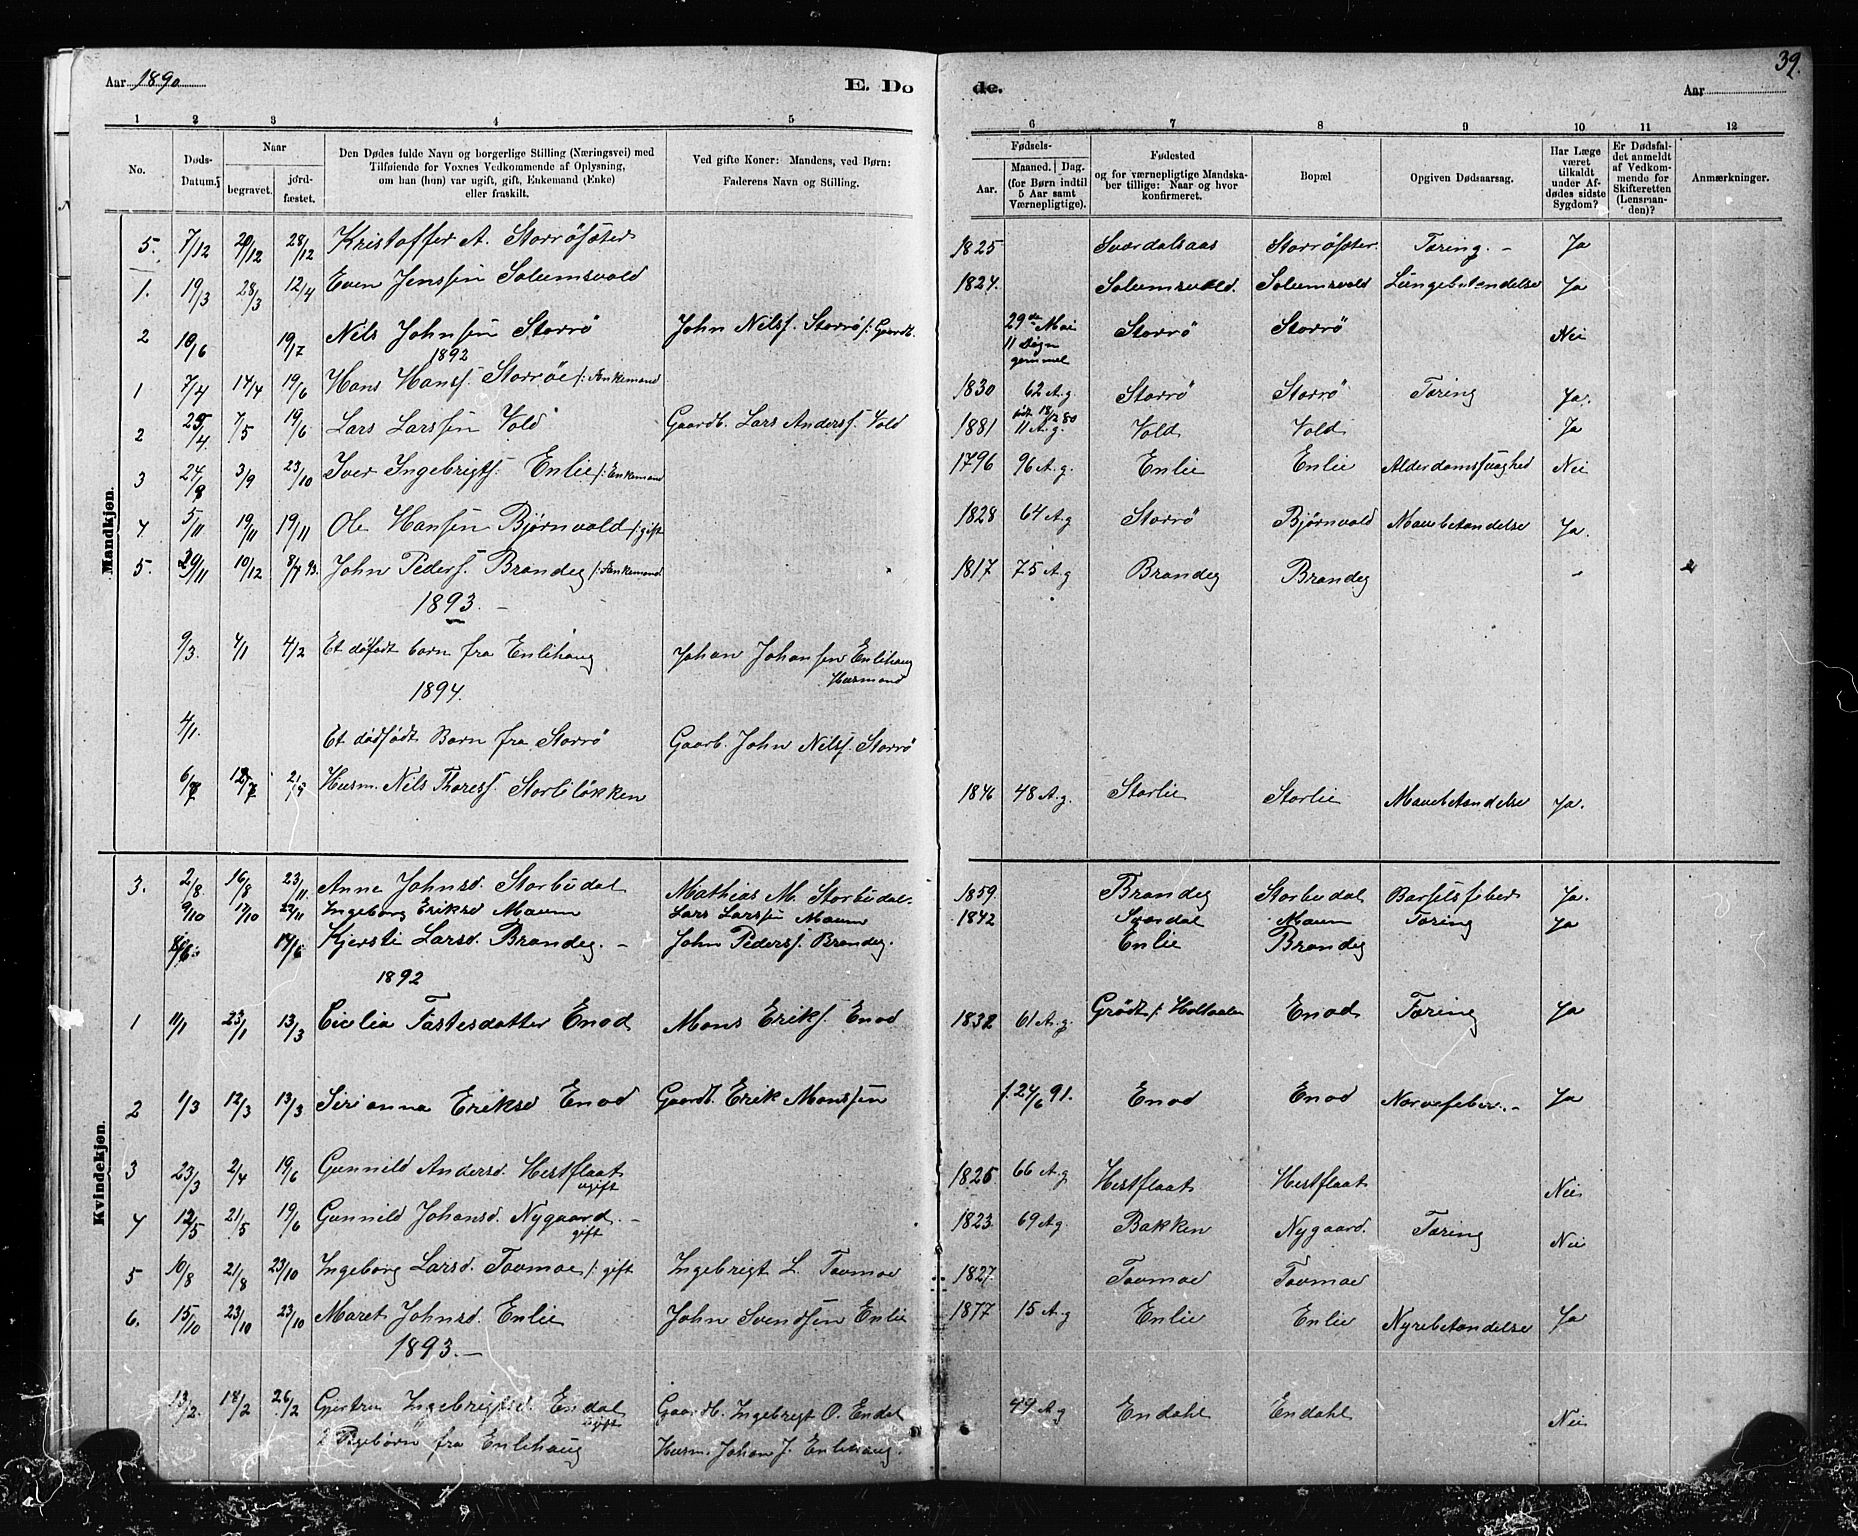 Aar 1890
E. Dø
de.
39.
Aar
1 2 3 4 5 6 7 8 9 10 11 12
No.
Døds-Datum.
Naar
begravet. jordfæstet.
Den Dødes fulde Navn og borgerlige Stilling (Næringsvei) med
Tilføiende for Voxnes Vedkommende af Oplysning,
om han (hun) var ugift, gift, Enkemand (Enke)
eller fraskilt.
Ved gifte Koner: Mandens, ved Børn:
Faderens Navn og Stilling.
Fødsels-
Aar. Maaned. Dag.
(for Børn indtil
5 Aar samt
Værnepligtige).
Fødested
og for værnepligtige Mandska-
ber tillige: Naar og hvor
konfirmeret.
Bopæl
Opgiven Dødsaarsag.
Har Læge
været
tilkaldt
under Af-
dødes sidste
Sygdom?
Er Dødsfal-
det anmeldt
af Vedkom-
mende for
Skifteretten
(Lensman-
den)?
Anmærkninger.
Mandkjøn.
5. 7/12 20/12 28/12 Kristoffer A. Storrøsæter 1825 Svardalsaas Storrøsæter. Tæring. - Ja
1. 19/3 28/3 12/4 Even Jenssen Solemsvold 1824. Solemsvold. Solemsvold Lungebetendelse Ja
2 10/6 19/7 Nils Johnsen Storrø John Nilss. Storrø /: Gaardb. 29de Mai 11 Døgn gammel Storrø Storrø Nei
1892
1 7/4 14/4 19/6 Hans Hanss. Storrøe /: Enkemand 1830 62 A.g. Storrø Storrø Tæring Ja.
2 25/4 7/5 19/6 Lars Larssen Vold Gaardb. Lars Anderss. Vold 1881 født 18/12 80 11 A.g. Vold Vold Ja
3 24/8 3/9 23/10 Iver Ingebrigts. Enlie /: Enkemand 1796 96 A.g. Enlie Enlie Alderdomssvaghed Nei
4 5/11 19/11 19/11 Ole Hansen Bjørnvold /: gift 1828 64 A.g Storrø Bjørnvold Mavebetendelse Ja.
5. 29/11 10/12 8/4 93. John Peders. Brandeg /: Enkemand 1817 75 A.g Brandeg Brandeg
1893. -
9/3. 4/1 4/2 Et døfødt barn fra Enlihaug Johan Johansen Enlihaug Husmand
1894.
4/1. Et dødfødt Barn fra Storrø Gaarb. John Nilss. Storrø
6/7 Husm. Nils Thoress. Storliløkken 1846 48 A.g. Storlie Storlie Mavebetendelse Ja.
Kvindekjøn.
3. 2/8 16/8 23/11 Anne Johnsd. Storbudal Mathias M. Storbudal. 1859. Brandeg Storbudal Barselsfeber Ja.
9/10 17/10 23/11 Ingeborg Eriksd Maum Lars Larssen Maum 1842 Svardal Maum Tæring Ja
17/6 Kjersti Larsd. Brandeg. - John Peders. Brandeg. Enlie Brandeg
1892
1 11/1 23/1 13/3 Cicilia Fastesdatter Enod Mons Eriks. Enod 1832 61 A.g. Grødt /: Holtaalen Enod Tæring Ja
2 1/3 12/3 13/3 Sirianna Eriksd Enod Gaardb. Erik Monssen f. 24/6 91. Enod Enod Nervefeber. - Ja
3 23/3 2/4 19/6 Gunnild Andersd. Hestflaat ugift 1826 66 A.g Hestflaat Hestflaat Nei
4 12/5 21/5 19/6 Gunnild Johansd. Nygaard. - gift 1823. 69 A.g. Bakken Nygaard. Tæring Nei
5 10/8 21/8 23/10 Ingeborg Larsd. Tovmoe /: gift Ingebrigt L. Tovmoe 1827. Tovmoe Tovmoe
6. 15/10 23/10 23/10 Maret Johnsd. Enlie John Svendsen Enlie 1877 15 A.g Enlie Enlie Nyrebetendelse Ja
1893. -
13/2. 18/2 26/2 Gjertru Ingebrigtsd. Endal ugift Gaardb. Ingebrigt O. Endal 49 A.g Endahl Endahl Nei
2 Pigebørn fra Enlihaug Husm. Johan J. Enlihaug.